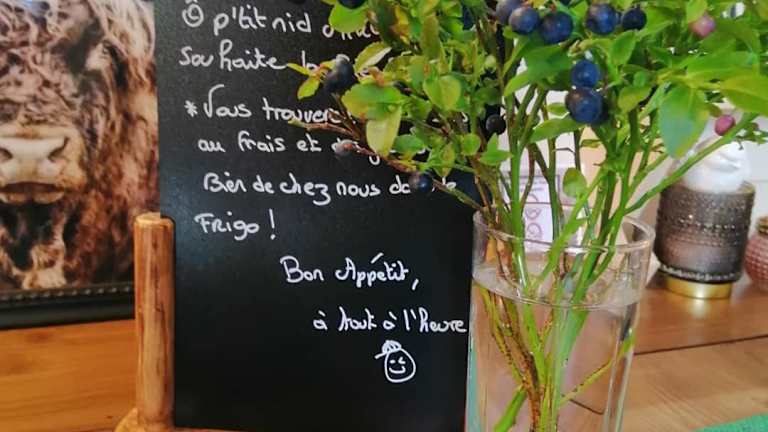 Ô p'tit nid
Souhaite
* Vous trouver
au frais et
Bien de chez nous
Frigo !
Bon Appétit,
à tout à l'heure